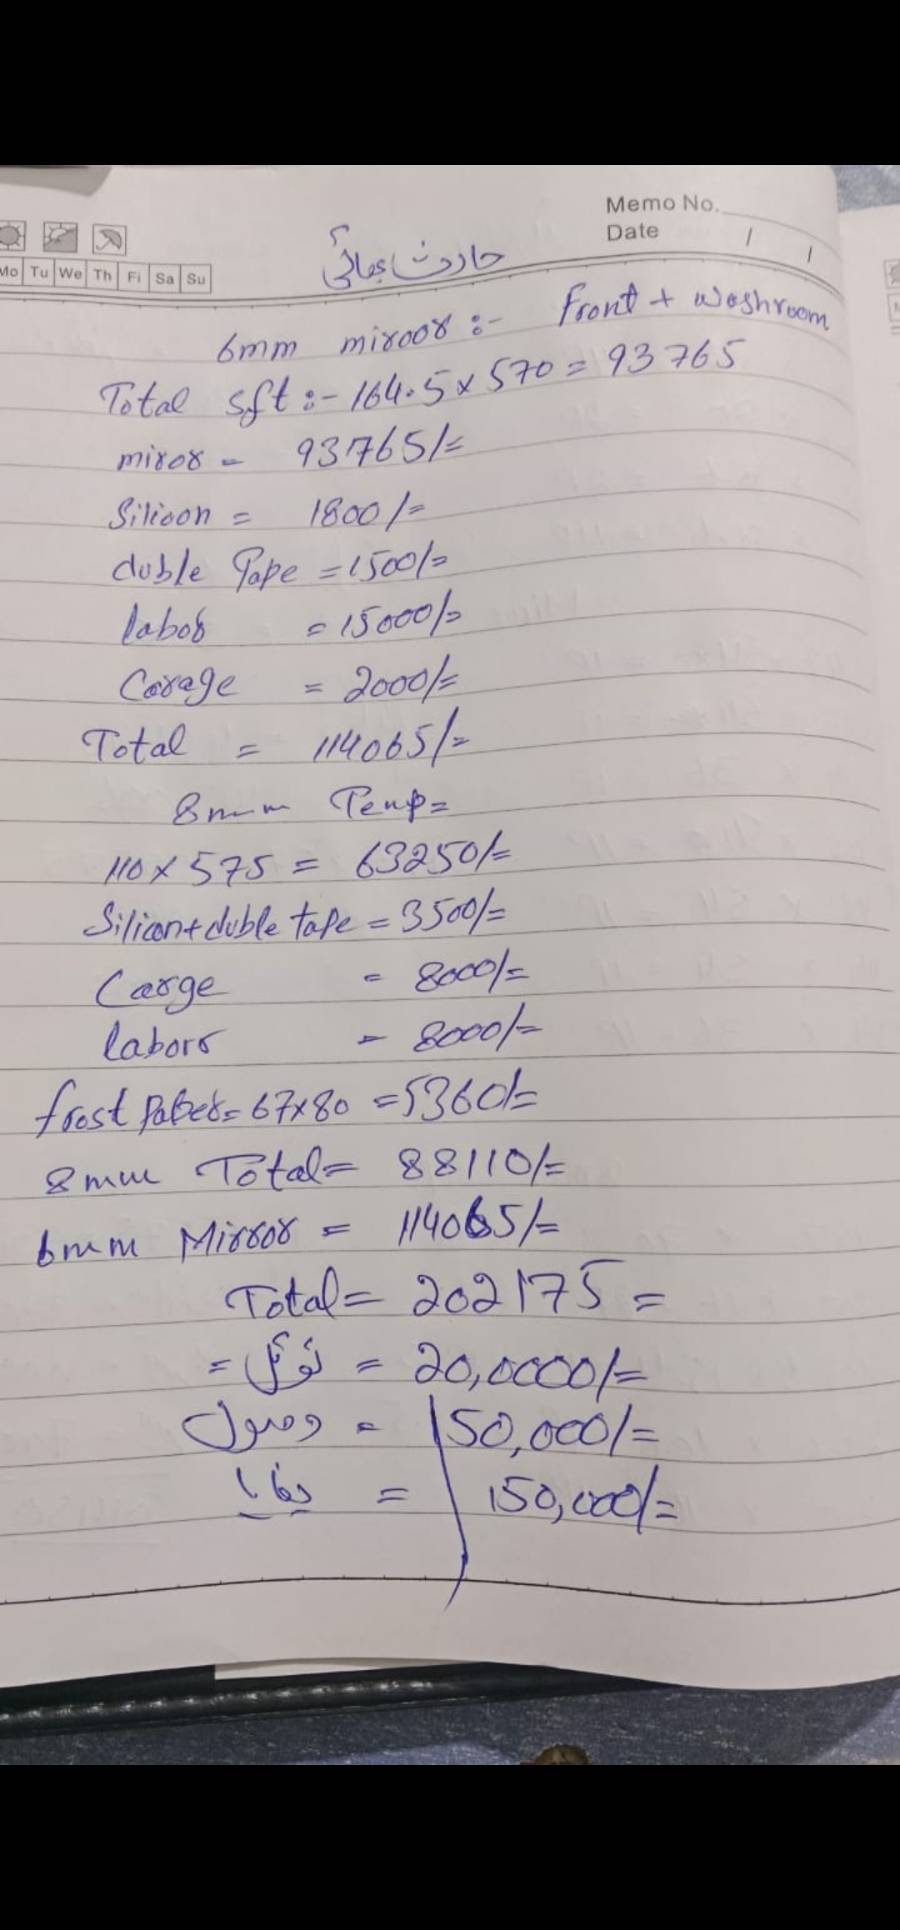 Memo No.
Date / /
Mo Tu We Th Fi Sa Su
حارث بھائی
6mm miroor :- Front + Woshroom
Total Sft :- 164.5 x 570 = 93765
miror = 93765/=
Silicon = 1800/=
duble Tape = 1500/=
labor = 15000/=
Corage = 2000/=
Total = 114065/=
8mm Temp=
110 x 575 = 63250/=
Silicon+duble tape = 3500/=
Carge = 8000/=
laborr = 8000/=
frost Paper= 67x80 = 5360/=
8mm Total= 88110/=
6mm Mirror = 114065/=
Total= 202175 =
ٹوٹل = 20,0000/=
وصول = 50,000/=
بقایا = 150,000/=